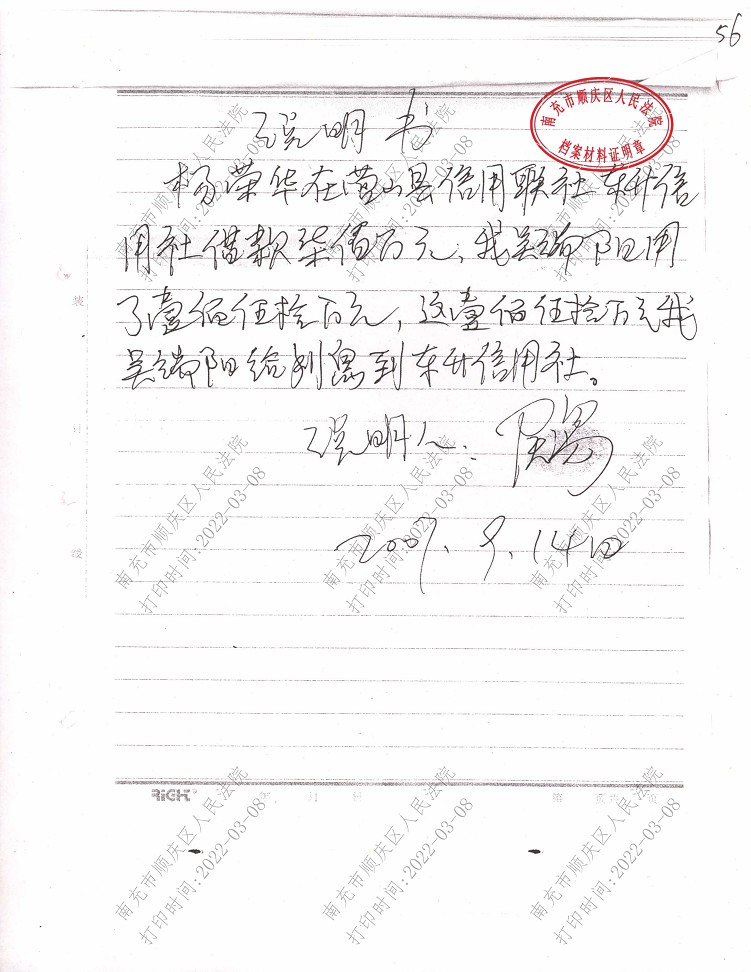 56
南充市顺庆区人民法院
档案材料证明章
说明书
杨荣华在营山县信用联社东升信
用社借款柒佰万元，我吴端阳用
了壹佰伍拾万元，这壹佰伍拾万元我
吴端阳给划 到东升信用社。
说明人：
2007.9.14日
装
订
线
RiCH
年 月 日
第 页
南充市顺庆区人民法院
打印时间:2022-03-08
南充市顺庆区人民法院
打印时间:2022-03-08
南充市顺庆区人民法院
打印时间:2022-03-08
南充市顺庆区人民法院
打印时间:2022-03-08
南充市顺庆区人民法院
打印时间:2022-03-08
南充市顺庆区人民法院
打印时间:2022-03-08
南充市顺庆区人民法院
打印时间:2022-03-08
南充市顺庆区人民法院
打印时间:2022-03-08
南充市顺庆区人民法院
打印时间:2022-03-08